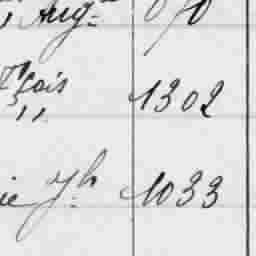 ,, Aug=
fçois 1302
,,
ie Jh 1033